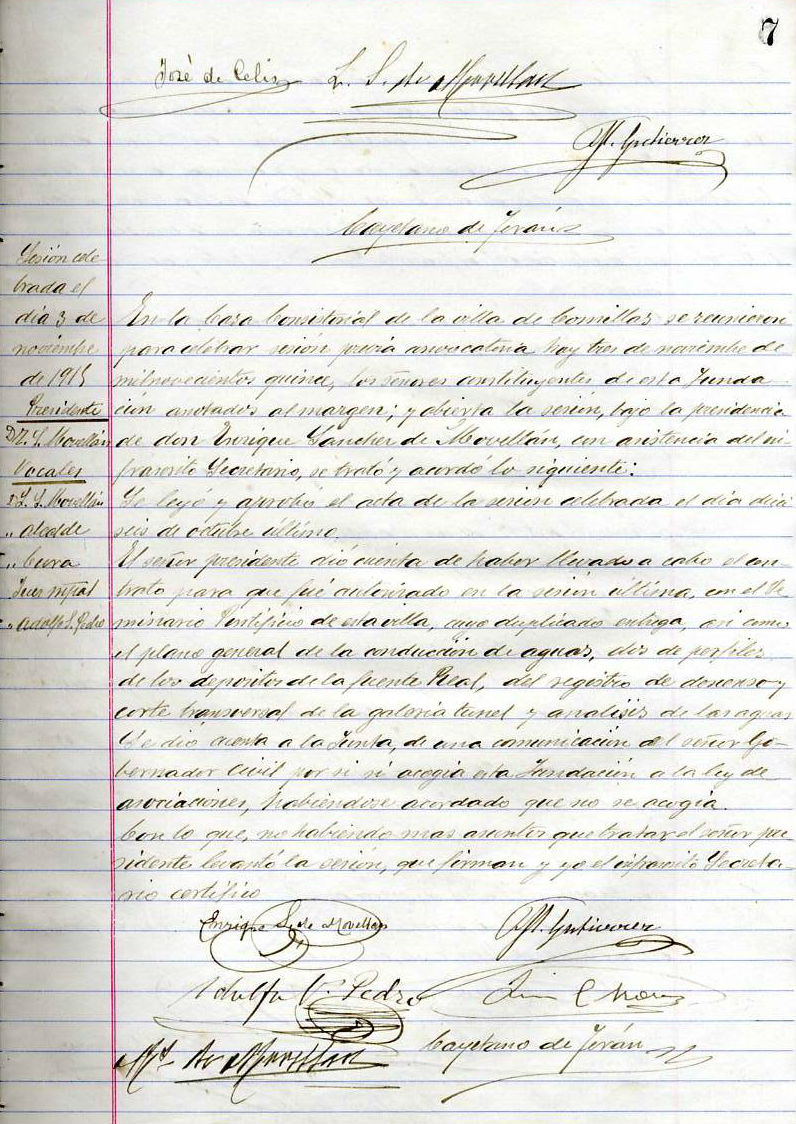 7
José de Celis L. S. de Movellan
M. Gutierrez
Cayetano de Terán
Sesión cele
brada el
dia 3 de
noviembre
de 1915
Presidente
D. E. S. Movellán
Vocales
D. L. S. Movellán
" alcalde
" Cura
Juez mpal
" Adolfo S. Pedro
En la Casa Consistorial de la villa de Comillas se reunieron
para celebrar sesión previa convocatoria hoy tres de noviembre de
mil novecientos quince, los señores constituyentes de esta Funda
ción anotados al margen; y abierta la sesión, bajo la presidencia
de don Enrique Sanchez de Movellán, con asistencia del in-
frascrito Secretario, se trató y acordó lo siguiente:
Se leyó y aprobó el acta de la sesion celebrada el dia dieci
seis de octubre último.
El señor presidente dió cuenta de haber llevado a cabo el con-
trato para que fué autorizado en la sesión última, con el Se
minario Pontificio de esta villa, cuyo duplicado entrega, asi como
el plano general de la conducción de aguas, dos de perfiles
de los depositos de la fuente Real, del registro de descenso y
corte transversal de la galeria tunel y analisis de las aguas
Se dió cuenta a la Junta, de una comunicación del señor Go-
bernador Civil por si si acogia esta Fundación a la ley de
asociaciones, habiéndose acordado que no se acogia.
Con lo que, no habiendo mas asuntos que tratar el señor pre
sidente levantó la sesión, que firman y yo el infrascrito Secreta-
rio certifico
Enrique S. de Movellan M. Gutierrez
Adolfo S. Pedro
de Movellan Cayetano de Terán